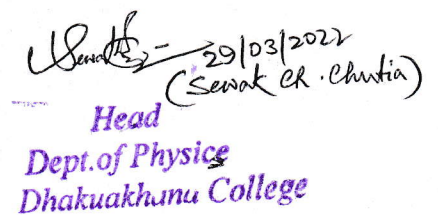 29/03/2022
(Sewak Ch. Chutia)
Head
Dept.of Physics
Dhakuakhana College